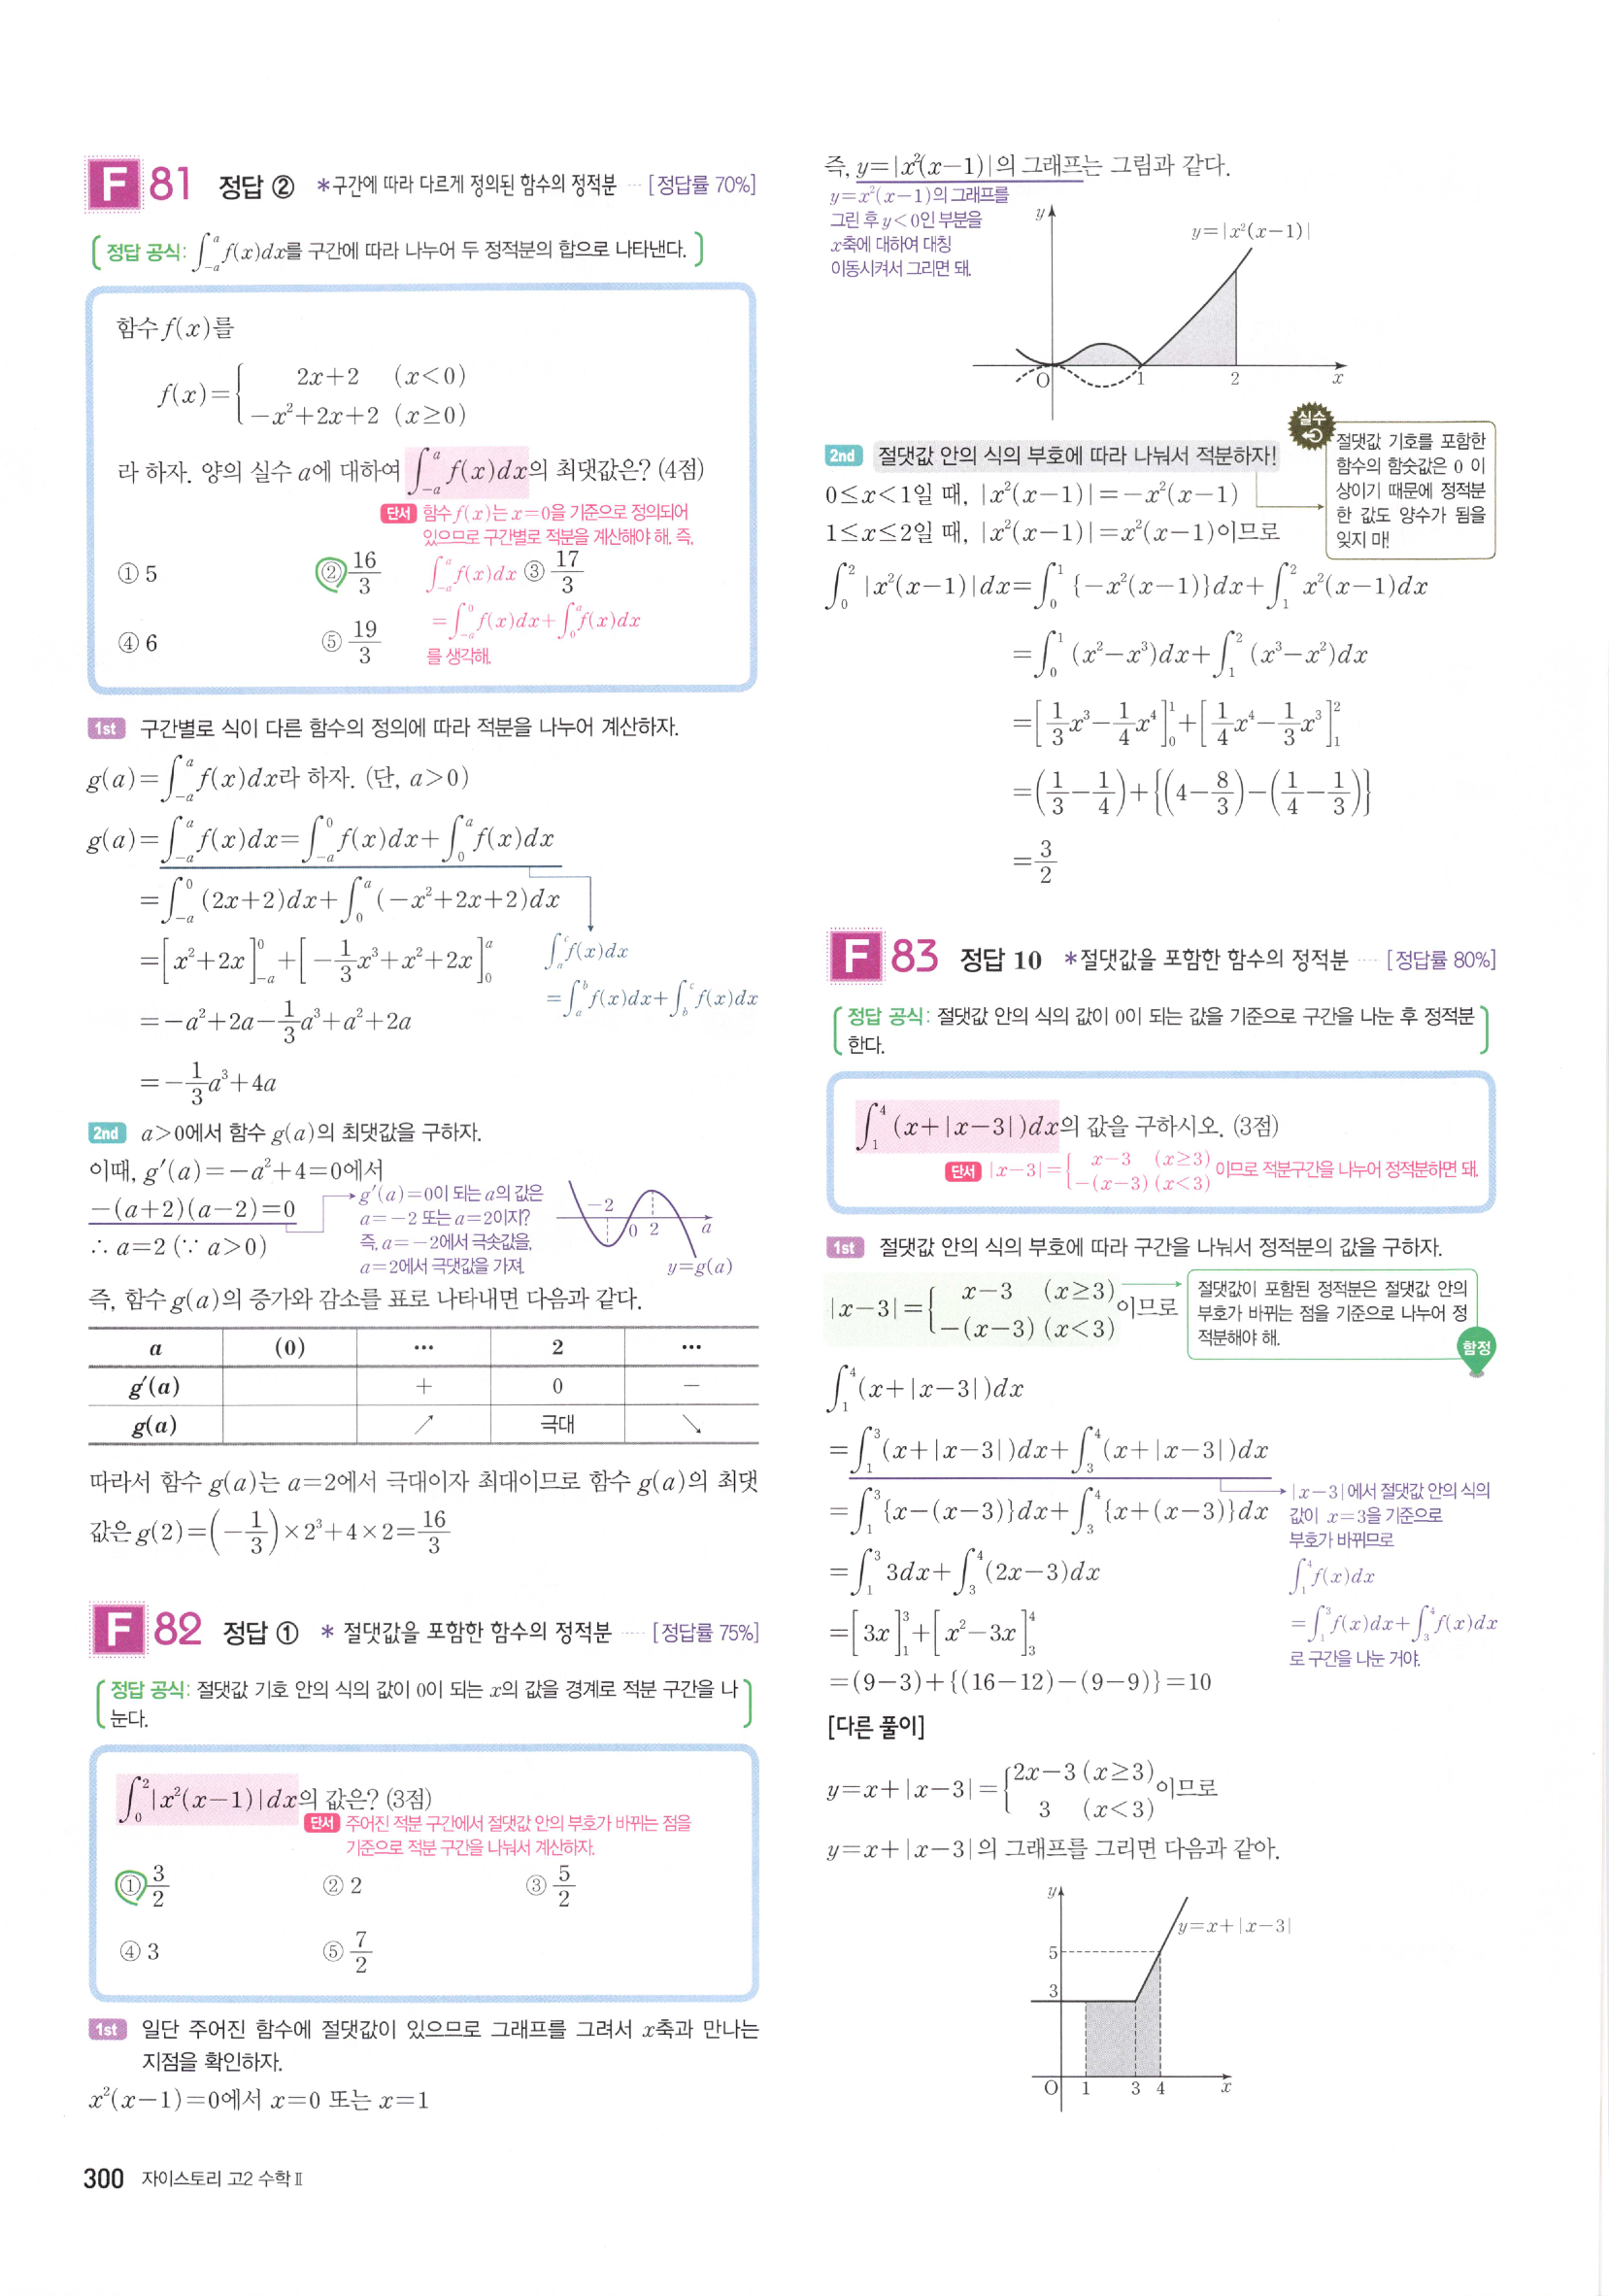 F 81 정답 ② *구간에 따라 다르게 정의된 함수의 정적분 ··· [정답률 70%]
정답 공식: ∫_{-a}^{a} f(x)dx를 구간에 따라 나누어 두 정적분의 합으로 나타낸다.
함수 f(x)를
f(x)={ 2x+2 (x<0)
-x²+2x+2 (x≥0)
라 하자. 양의 실수 a에 대하여 ∫_{-a}^{a} f(x)dx의 최댓값은? (4점)
단서 함수 f(x)는 x=0을 기준으로 정의되어
있으므로 구간별로 적분을 계산해야 해. 즉,
① 5 ② 16/3 ∫_{-a}^{a} f(x)dx ③ 17/3
=∫_{-a}^{0} f(x)dx+∫_{0}^{a} f(x)dx
④ 6 ⑤ 19/3
를 생각해.
1st 구간별로 식이 다른 함수의 정의에 따라 적분을 나누어 계산하자.
g(a)=∫_{-a}^{a} f(x)dx라 하자. (단, a>0)
g(a)=∫_{-a}^{a} f(x)dx=∫_{-a}^{0} f(x)dx+∫_{0}^{a} f(x)dx
=∫_{-a}^{0} (2x+2)dx+∫_{0}^{a} (-x²+2x+2)dx
=[x²+2x]_{-a}^{0}+[-1/3x³+x²+2x]_{0}^{a}
∫_{a}^{c} f(x)dx
=∫_{a}^{b} f(x)dx+∫_{b}^{c} f(x)dx
=-a²+2a-1/3a³+a²+2a
=-1/3a³+4a
2nd a>0에서 함수 g(a)의 최댓값을 구하자.
이때, g′(a)=-a²+4=0에서
-(a+2)(a-2)=0
∴ a=2 (∵ a>0)
g′(a)=0이 되는 a의 값은
a=-2 또는 a=2이지?
즉, a=-2에서 극솟값을,
a=2에서 극댓값을 가져.
-2 0 2 a
y=g(a)
즉, 함수 g(a)의 증가와 감소를 표로 나타내면 다음과 같다.
a (0) ··· 2 ···
g′(a) + 0 -
g(a) ↗ 극대 ↘
따라서 함수 g(a)는 a=2에서 극대이자 최대이므로 함수 g(a)의 최댓
값은 g(2)=(-1/3)×2³+4×2=16/3
F 82 정답 ① * 절댓값을 포함한 함수의 정적분 ···· [정답률 75%]
정답 공식: 절댓값 기호 안의 식의 값이 0이 되는 x의 값을 경계로 적분 구간을 나
눈다.
∫_{0}^{2} |x²(x-1)|dx의 값은? (3점)
단서 주어진 적분 구간에서 절댓값 안의 부호가 바뀌는 점을
기준으로 적분 구간을 나눠서 계산하자.
① 3/2 ② 2 ③ 5/2
④ 3 ⑤ 7/2
1st 일단 주어진 함수에 절댓값이 있으므로 그래프를 그려서 x축과 만나는
지점을 확인하자.
x²(x-1)=0에서 x=0 또는 x=1
300 자이스토리 고2 수학 Ⅱ
즉, y=|x²(x-1)|의 그래프는 그림과 같다.
y=x²(x-1)의 그래프를
그린 후 y<0인 부분을
x축에 대하여 대칭
이동시켜서 그리면 돼.
y
y=|x²(x-1)|
O 1 2 x
2nd 절댓값 안의 식의 부호에 따라 나눠서 적분하자!
0≤x<1일 때, |x²(x-1)|=-x²(x-1)
1≤x≤2일 때, |x²(x-1)|=x²(x-1)이므로
실수
절댓값 기호를 포함한
함수의 함숫값은 0 이
상이기 때문에 정적분
한 값도 양수가 됨을
잊지 마!
∫_{0}^{2} |x²(x-1)|dx=∫_{0}^{1} {-x²(x-1)}dx+∫_{1}^{2} x²(x-1)dx
=∫_{0}^{1} (x²-x³)dx+∫_{1}^{2} (x³-x²)dx
=[1/3x³-1/4x⁴]_{0}^{1}+[1/4x⁴-1/3x³]_{1}^{2}
=(1/3-1/4)+{(4-8/3)-(1/4-1/3)}
=3/2
F 83 정답 10 *절댓값을 포함한 함수의 정적분 ···· [정답률 80%]
정답 공식: 절댓값 안의 식의 값이 0이 되는 값을 기준으로 구간을 나눈 후 정적분
한다.
∫_{1}^{4} (x+|x-3|)dx의 값을 구하시오. (3점)
단서 |x-3|={ x-3 (x≥3)
-(x-3) (x<3) 이므로 적분구간을 나누어 정적분하면 돼.
1st 절댓값 안의 식의 부호에 따라 구간을 나눠서 정적분의 값을 구하자.
|x-3|={ x-3 (x≥3)
-(x-3) (x<3) 이므로
절댓값이 포함된 정적분은 절댓값 안의
부호가 바뀌는 점을 기준으로 나누어 정
적분해야 해.
함정
∫_{1}^{4} (x+|x-3|)dx
=∫_{1}^{3} (x+|x-3|)dx+∫_{3}^{4} (x+|x-3|)dx
=∫_{1}^{3} {x-(x-3)}dx+∫_{3}^{4} {x+(x-3)}dx
=∫_{1}^{3} 3dx+∫_{3}^{4} (2x-3)dx
=[3x]_{1}^{3}+[x²-3x]_{3}^{4}
=(9-3)+{(16-12)-(9-9)}=10
|x-3|에서 절댓값 안의 식의
값이 x=3을 기준으로
부호가 바뀌므로
∫_{1}^{4} f(x)dx
=∫_{1}^{3} f(x)dx+∫_{3}^{4} f(x)dx
로 구간을 나눈 거야.
[다른 풀이]
y=x+|x-3|={ 2x-3 (x≥3)
3 (x<3) 이므로
y=x+|x-3|의 그래프를 그리면 다음과 같아.
y
y=x+|x-3|
5
3
O 1 3 4 x